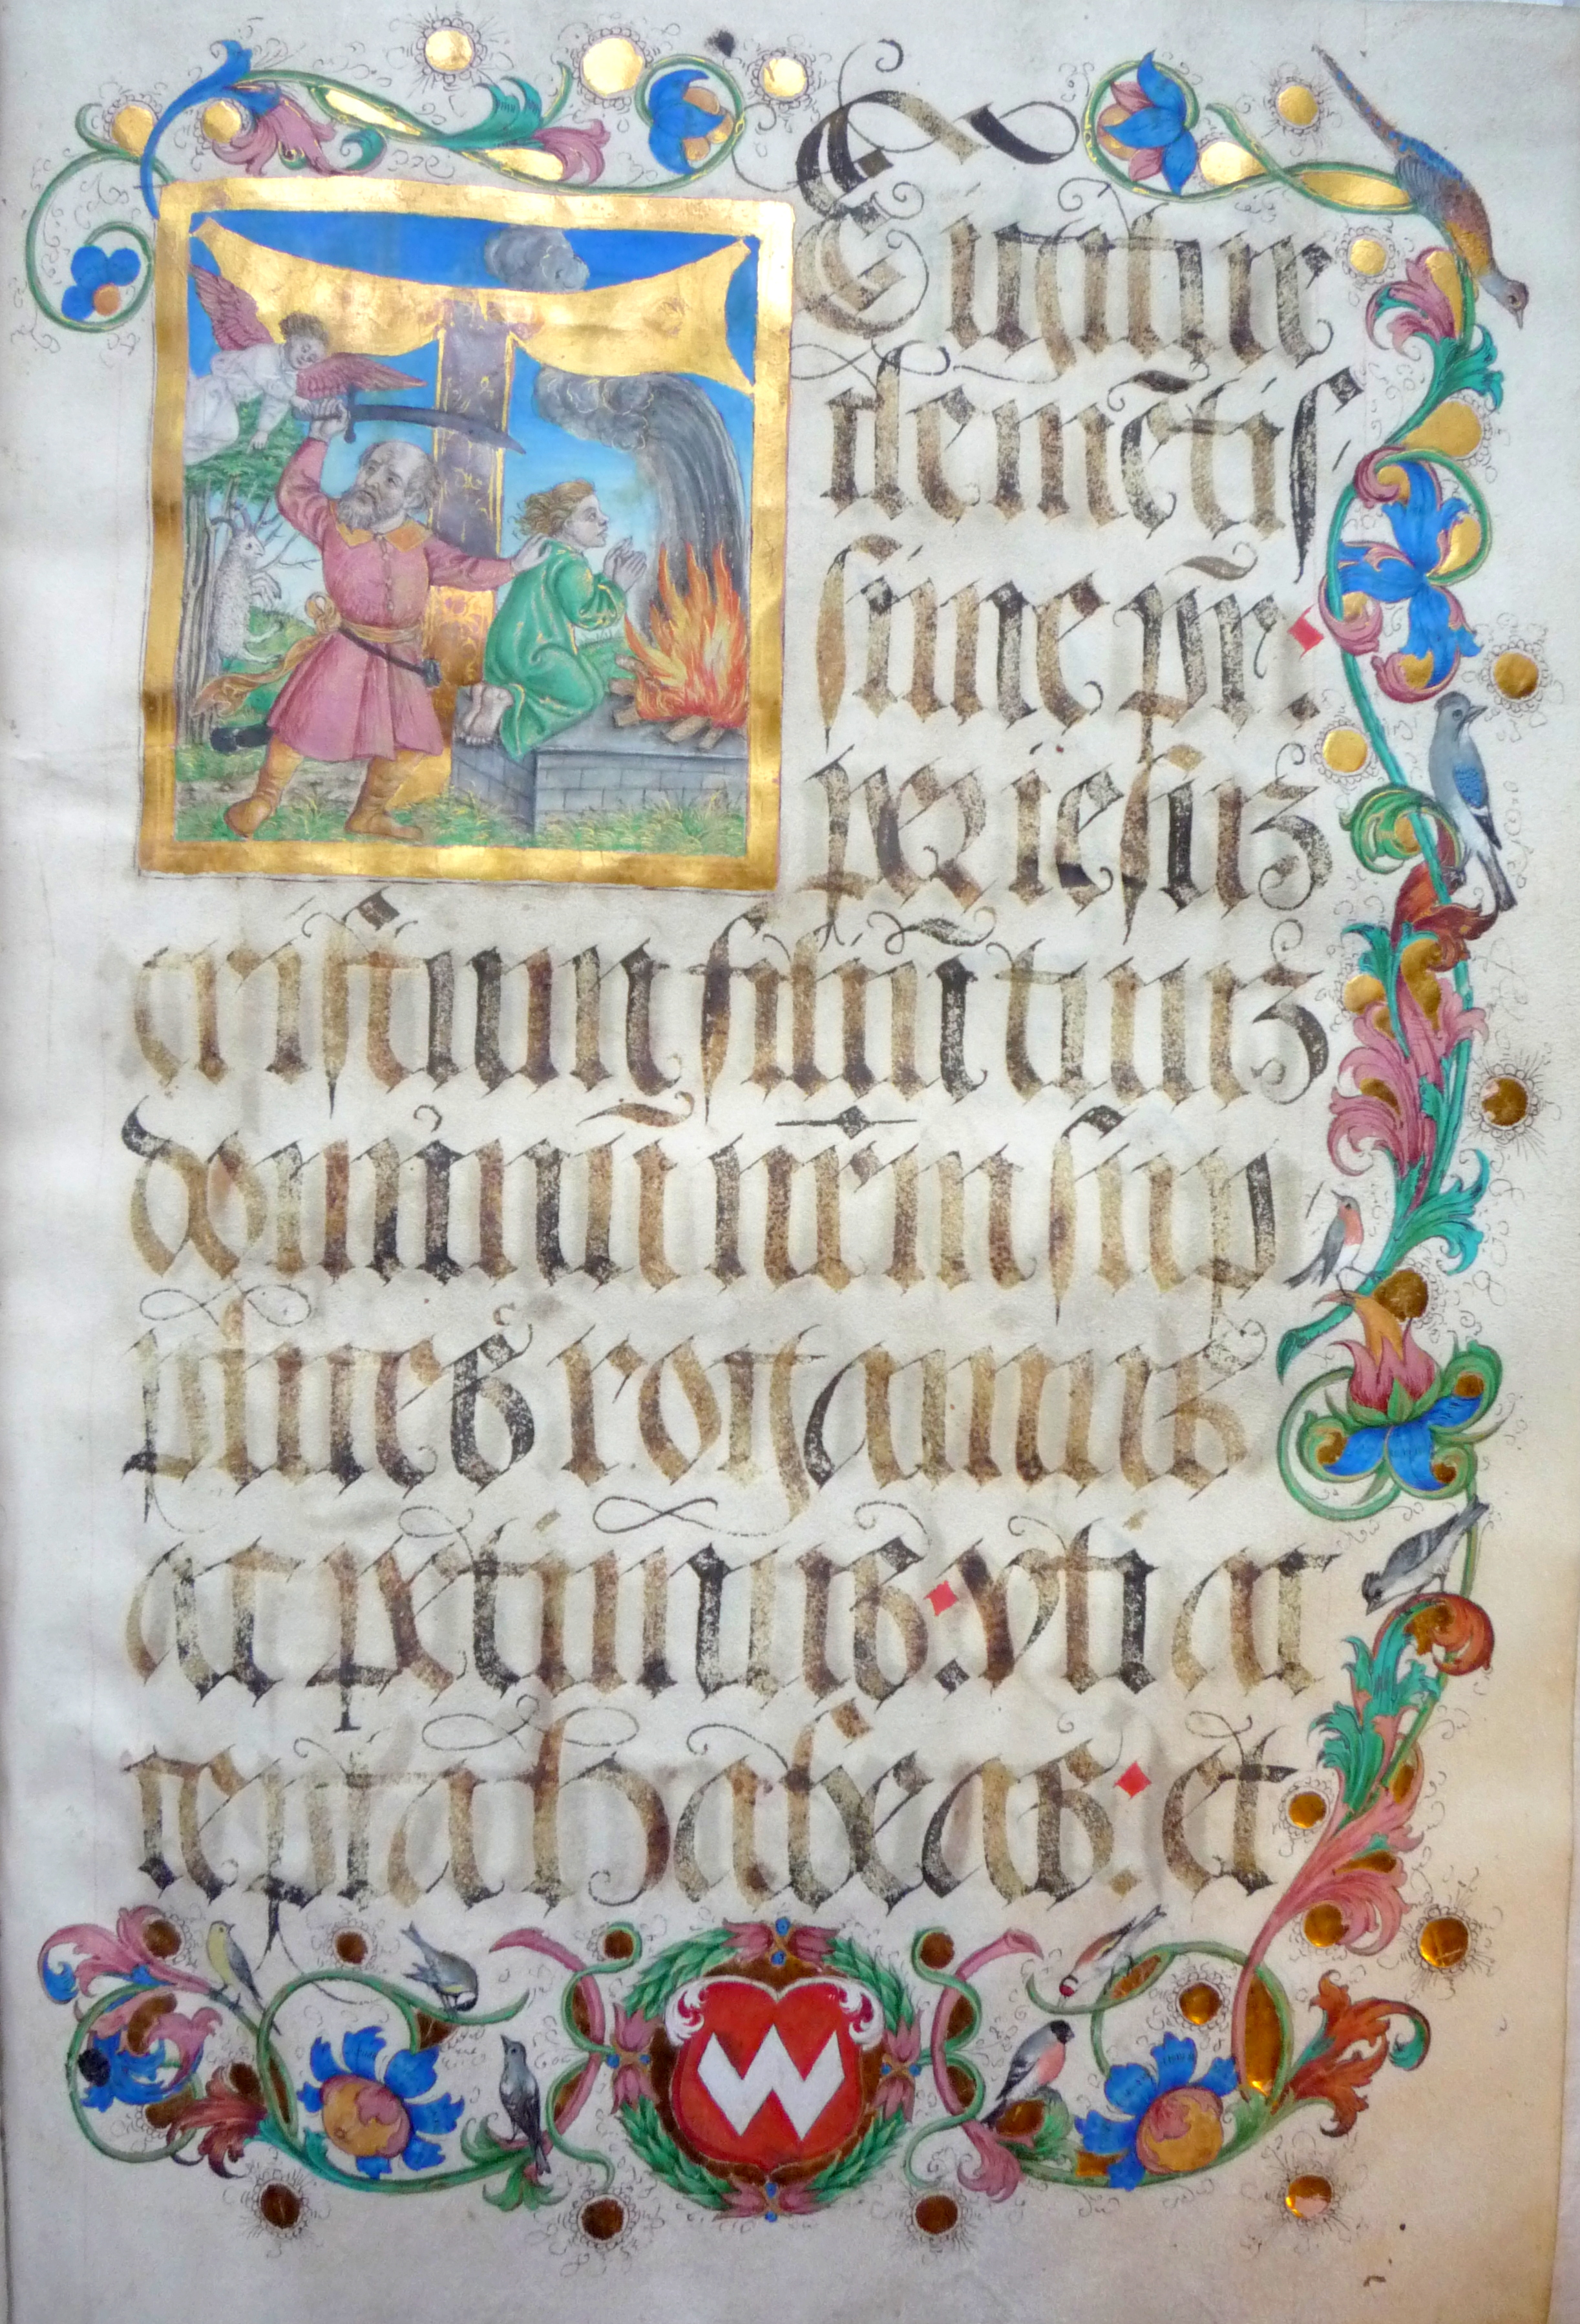 TE igitur
clemētis
sime pr̄.
per iesuz
cristum filiū tuuz
dominū nr̄m sup
plices rogamus
ac petimus. vti ac
cepta habeas. et